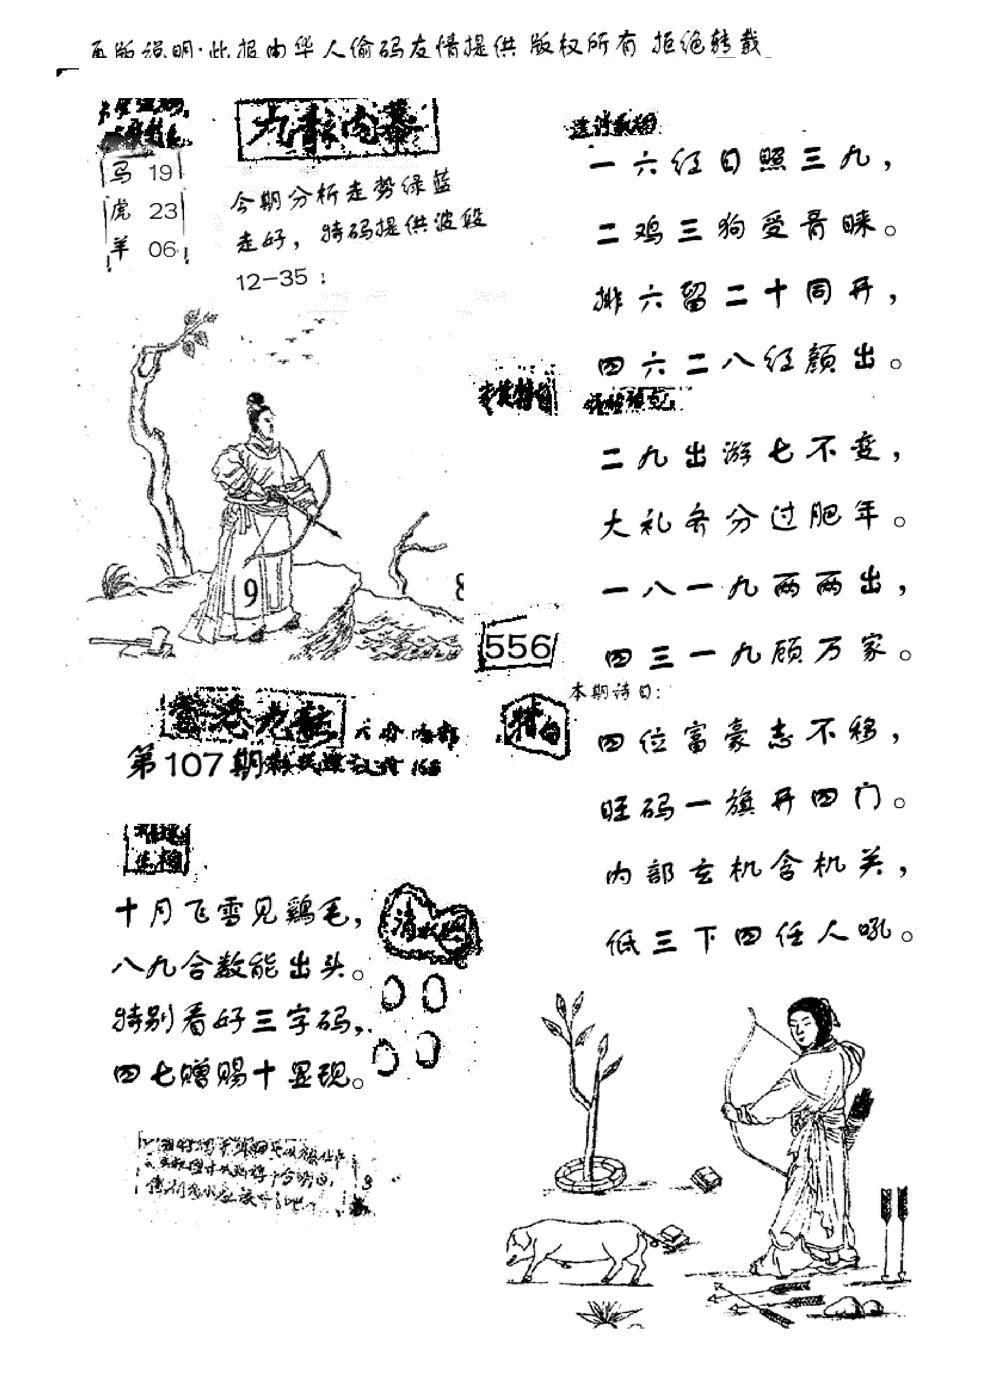 再版说明·此报由华人偷码友情提供 版权所有 拒绝转载
九龍内幕
马 19
虎 23
羊 06
今期分析走势绿蓝
走好，特码提供波段
12-35：
一六红日照三九，
二鸡三狗受青睐。
排六留二十同开，
四六二八红颜出。
二九出游七不变，
大礼齐分过肥年。
一八一九两两出，
四三一九顾万家。
9
8
556
本期诗曰：
特曰
四位富豪志不移，
旺码一旗开四门。
内部玄机含机关，
低三下四任人吼。
香港九龍
第107期
168
十月飞雪见鷄毛，
八九合数能出头。
特别看好三字码，
四七赠赐十显现。